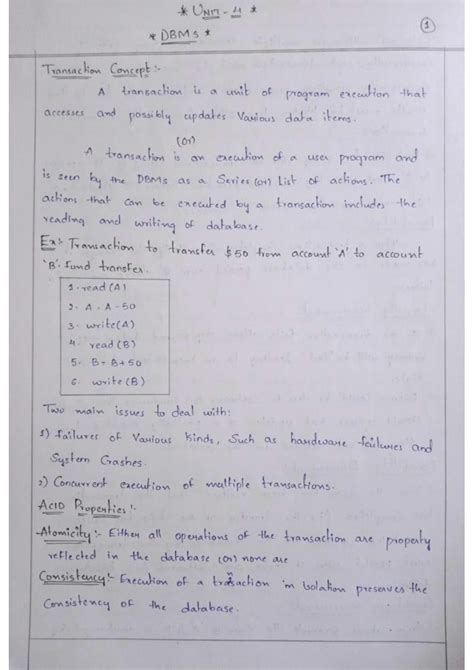 * UNIT-4 *
1
* DBMS *
Transaction Concept:-
A transaction is a unit of program execution that
accesses and possibly updates Various data items.
(or)
A transaction is an execution of a user program and
is seen by the DBMS as a Series (or) List of actions. The
actions that can be executed by a transaction includes the
reading and writing of database.
Ex:- Transaction to transfer $50 from account 'A' to account
'B'. fund transfer.
1. read (A)
2. A = A - 50
3. write(A)
4. read (B)
5. B = B + 50
6. write (B)
Two main issues to deal with:
1) failures of Various kinds, Such as hardware failures and
System Crashes.
2) Concurrent execution of multiple transactions.
ACID Properties:-
Atomicity:- Either all operations of the transaction are property
reflected in the database (or) none are
Consistency:- Execution of a transaction in Isolation preserves the
Consistency of the database.